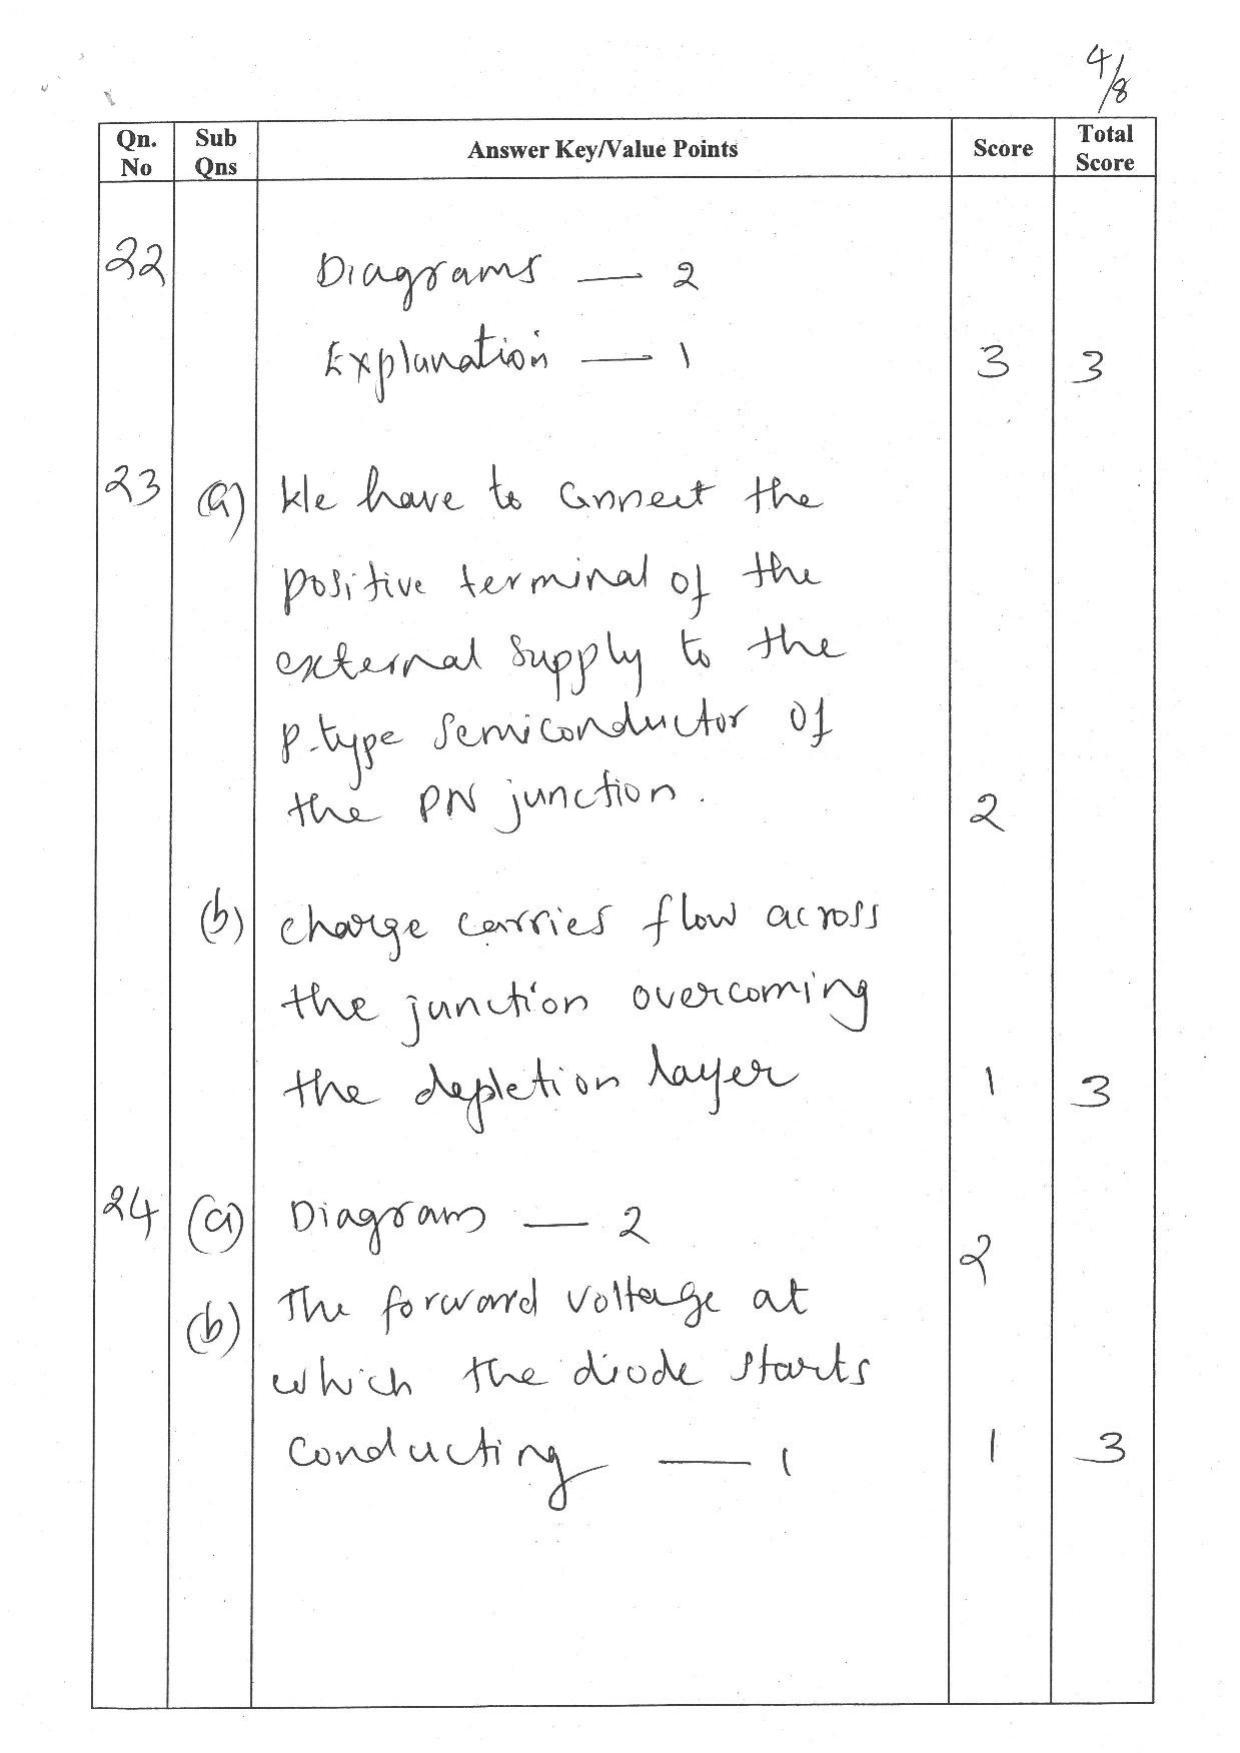 4/8
Qn. No Sub Qns Answer Key/Value Points Score Total Score
22 Diagrams — 2
Explanation — 1 3 3
23 (a) We have to connect the
positive terminal of the
external supply to the
p-type semiconductor of
the PN junction. 2
(b) charge carries flow across
the junction overcoming
the depletion layer 1 3
24 (a) Diagrams — 2 2
(b) The forward voltage at
which the diode starts
conducting — 1 1 3